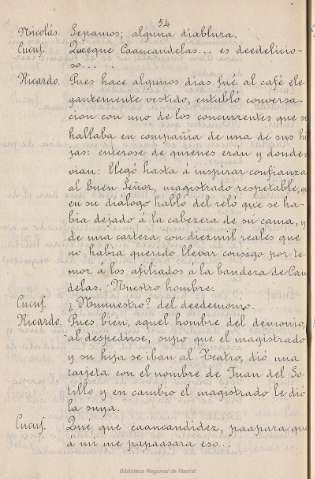 54
Nicolás. Sepamos; alguna diablura.
Cucuf. Queeque Caancandelas... es deedelicio-
so... .
Ricardo. Pues hace algunos dias fué al café ele-
gantemente vestido, entabló conversa-
cion con uno de los concurrentes que se
hallaba en compañia de una de sus hi
jas: enterose de quienes eran y donde
vian: llegó hasta á inspirar confianza
al buen Señor, magistrado respetable, 
en su diálogo habló del reló que se ha-
bia dejado á la cabecera de su cama, y
de una cartera con diezmil reales que
no habia querido llevar consigo por te-
mor á los afiliados á la bandera de Can
delas. Nuestro hombre:
Cucuf. ¿Nunuestro? del deedemonio.
Ricardo. Pues bien, aquel hombre del demonio,
al despedirse, supo que el magistrado
y su hija se iban al Teatro, dió una
tarjeta con el nombre de Juan del So-
tillo y en cambio el magistrado le dió
la suya.
Cucuf. Qué que caancandidez, paapara que
á mi me papaasara eso...
Biblioteca Regional de Madrid